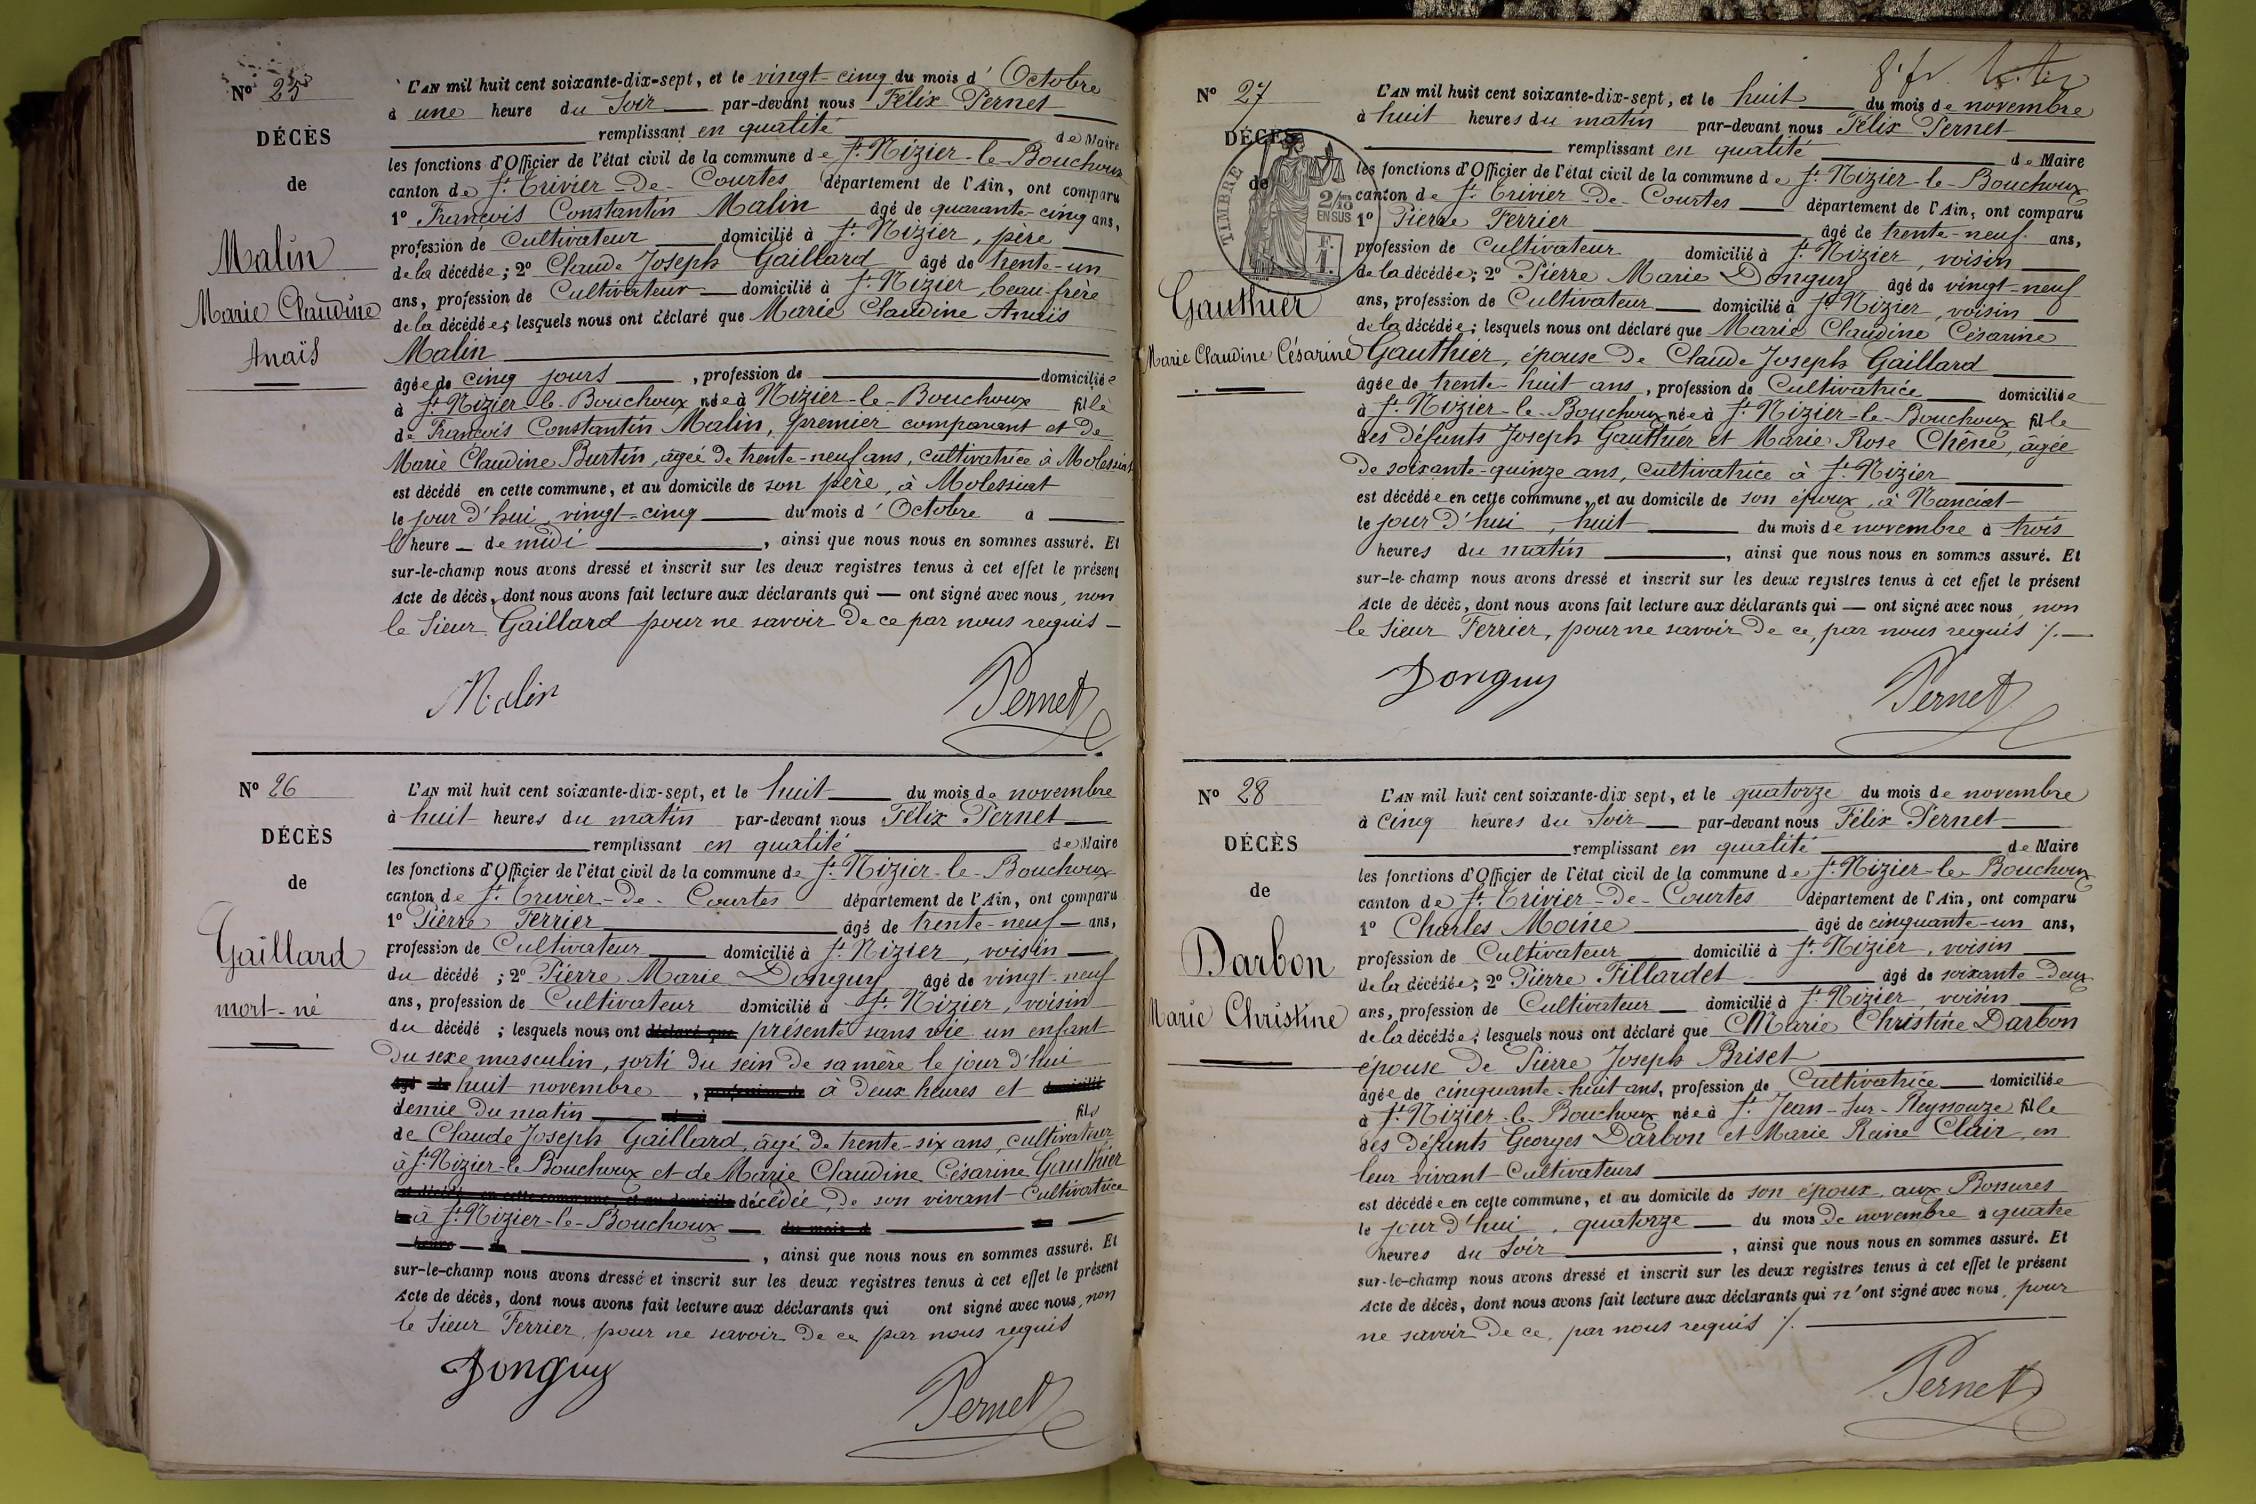 Nº 25
DÉCÈS
de
Malin
Marie Claudine
Anaïs
L'AN mil huit cent soixante-dix-sept, et le vingt-cinq du mois d'Octobre
à une heure du soir par-devant nous Félix Pernet
remplissant en qualité de Maire
les fonctions d'Officier de l'état civil de la commune de St. Nizier-le-Bouchoux
canton de St. Trivier-De-Courtes département de l'Ain, ont comparu
1º François Constantin Malin âgé de quarante-cinq ans,
profession de Cultivateur domicilié à St. Nizier, père
de la décédée; 2º Claude Joseph Gaillard âgé de trente-un
ans, profession de Cultivateur domicilié à St. Nizier, beau-frère
de la décédée; lesquels nous ont déclaré que Marie Claudine Anaïs
Malin
âgée de cinq jours, profession de domiciliée
à St. Nizier-le-Bouchoux née à Nizier-le-Bouchoux fille
de François Constantin Malin, premier comparant et de
Marie Claudine Burtin, âgée de trente-neuf ans, cultivatrice à Molessiat
est décédé en cette commune, et au domicile de son père, à Molessiat
le jour d'hui vingt-cinq du mois d'Octobre à
l'heure de midi, ainsi que nous nous en sommes assuré. Et
sur-le-champ nous avons dressé et inscrit sur les deux registres tenus à cet effet le présent
Acte de décès, dont nous avons fait lecture aux déclarants qui — ont signé avec nous, non
le Sieur Gaillard pour ne savoir De ce par nous requis —
Malin Pernet
Nº 26
DÉCÈS
de
Gaillard
mort-né
L'AN mil huit cent soixante-dix-sept, et le huit du mois de novembre
à huit heures du matin par-devant nous Félix Pernet
remplissant en qualité de Maire
les fonctions d'Officier de l'état civil de la commune de St. Nizier-le-Bouchoux
canton de St. Trivier-De-Courtes département de l'Ain, ont comparu
1º Pierre Ferrier âgé de trente-neuf ans,
profession de Cultivateur domicilié à St. Nizier, voisin
du décédé; 2º Pierre Marie Donguy âgé de vingt-neuf
ans, profession de Cultivateur domicilié à St. Nizier, voisin
du décédé; lesquels nous ont déclaré que présenté sans vie un enfant
Du sexe masculin, sorti du sein de sa mère le jour d'hui
âgé de huit novembre, profession de à Deux heures et domicilié
demie Du matin fils
de Claude Joseph Gaillard, âgé de trente-six ans, cultivateur
à St. Nizier-le-Bouchoux et de Marie Claudine Césarine Gauthier
est décédé en cette commune, et au domicile décédée, De son vivant Cultivatrice
à St. Nizier-le-Bouchoux du mois d
heure, ainsi que nous nous en sommes assuré. Et
sur-le-champ nous avons dressé et inscrit sur les deux registres tenus à cet effet le présent
Acte de décès, dont nous avons fait lecture aux déclarants qui ont signé avec nous, non
le Sieur Ferrier, pour ne savoir De ce par nous requis
Donguy Pernet
Nº 27
DÉCÈS
de
Gauthier
Marie Claudine Césarine
TIMBRE
2/10
EN SUS
F.
1.
L'AN mil huit cent soixante-dix-sept, et le huit du mois de novembre
à huit heures du matin par-devant nous Félix Pernet
remplissant en qualité de Maire
les fonctions d'Officier de l'état civil de la commune de St. Nizier-le-Bouchoux
canton de St. Trivier-De-Courtes département de l'Ain, ont comparu
1º Pierre Ferrier âgé de trente-neuf ans,
profession de Cultivateur domicilié à St. Nizier, voisin
de la décédée; 2º Pierre Marie Donguy âgé de vingt-neuf
ans, profession de Cultivateur domicilié à St. Nizier, voisin
de la décédée; lesquels nous ont déclaré que Marie Claudine Césarine
Gauthier, épouse De Claude Joseph Gaillard
âgée de trente-huit ans, profession de Cultivatrice domiciliée
à St. Nizier-le-Bouchoux née à St. Nizier-le-Bouchoux fille
des défunts Joseph Gauthier et Marie Rose Chêne, âgée
De soixante-quinze ans, cultivatrice à St. Nizier
est décédée en cette commune, et au domicile de son époux, à Nanciat
le jour d'hui, huit du mois de novembre à trois
heures du matin, ainsi que nous nous en sommes assuré. Et
sur-le-champ nous avons dressé et inscrit sur les deux registres tenus à cet effet le présent
Acte de décès, dont nous avons fait lecture aux déclarants qui — ont signé avec nous, non
le Sieur Ferrier, pour ne savoir De ce, par nous requis ./.
Donguy Pernet
Nº 28
DÉCÈS
de
Darbon
Marie Christine
L'AN mil huit cent soixante-dix sept, et le quatorze du mois de novembre
à cinq heures du soir par-devant nous Félix Pernet
remplissant en qualité de Maire
les fonctions d'Officier de l'état civil de la commune de St. Nizier-le-Bouchoux
canton de St. Trivier-De-Courtes département de l'Ain, ont comparu
1º Charles Moine âgé de cinquante-un ans,
profession de Cultivateur domicilié à St. Nizier, voisin
de la décédée; 2º Pierre Fillardet âgé de soixante-Deux
ans, profession de Cultivateur domicilié à St. Nizier, voisin
de la décédée; lesquels nous ont déclaré que Marie Christine Darbon
épouse De Pierre Joseph Briset
âgée de cinquante-huit ans, profession de Cultivatrice domiciliée
à St. Nizier-le-Bouchoux née à St. Jean-Sur-Reyssouze fille
des défunts Georges Darbon et Marie Reine Clair, en
leur vivant Cultivateurs
est décédée en cette commune, et au domicile de son époux, aux Bossures
le jour d'hui, quatorze du mois De novembre à quatre
heures du soir, ainsi que nous nous en sommes assuré. Et
sur-le-champ nous avons dressé et inscrit sur les deux registres tenus à cet effet le présent
Acte de décès, dont nous avons fait lecture aux déclarants qui n'ont signé avec nous, pour
ne savoir De ce, par nous requis ./.
Pernet